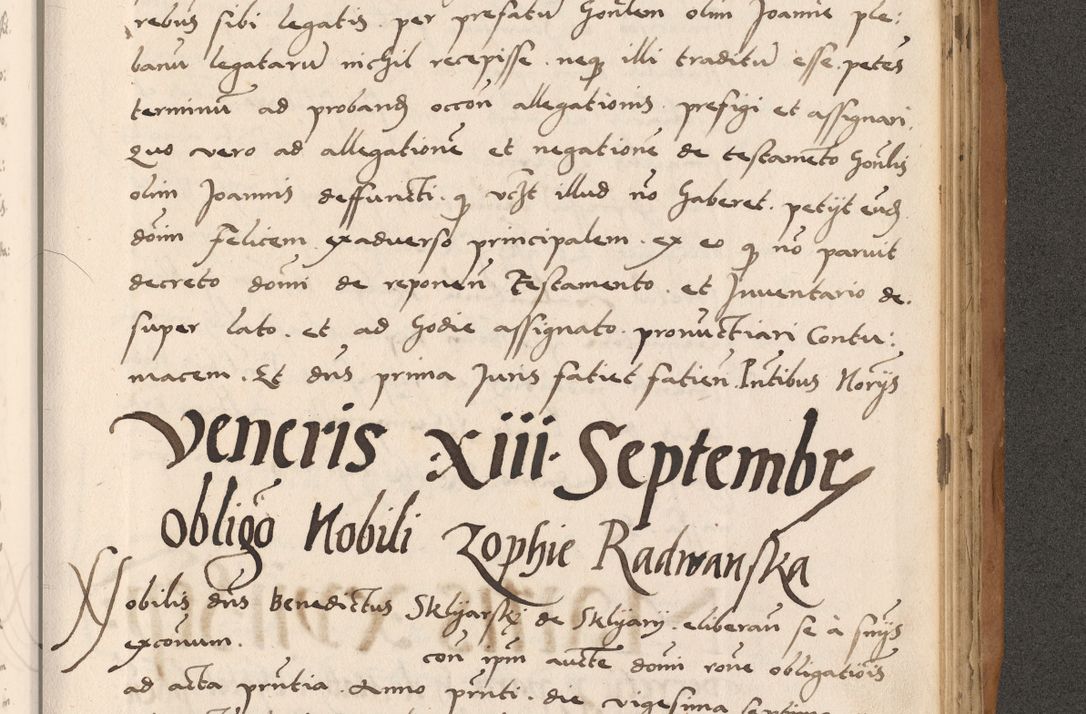 rebus sibi legatis . per prefatũ hon̄lem olim Joanne ple:
banũ legatarũ nichil recepisse . neqꝫ illi traditũ esse . petes
terminũ ad probandꝫ occon̄ allegationis . prefigi et assignari .
quo vero ad allegationẽ et negationẽ de testamento hon̄lis
olim Joannis deffuncti . illud nõ haberet . petijt eundꝫ
dom̄ Felicem exaduerso principalem . ex eo nõ paruit
decreto dom̄i de reponen̄ Testamento . et Inuentario de .
super lato . et ad hodie assignato . pronuctiari Contu:
macem . Et dn̄s prima Juris faciet facien̄ . Pn̄tibus Norijs
Veneris xiii Septembr
Obligõ Nobili Zophie Radwanska
Nobilis dn̄s Benedictus Sklyarsky de Sklyary . eliberan̄ se à suijs
exconum . con̄ ip̄m aucte dom̄i rone obligationis
ad acta prn̄tia . Anno prn̄ti . die vigesima septima